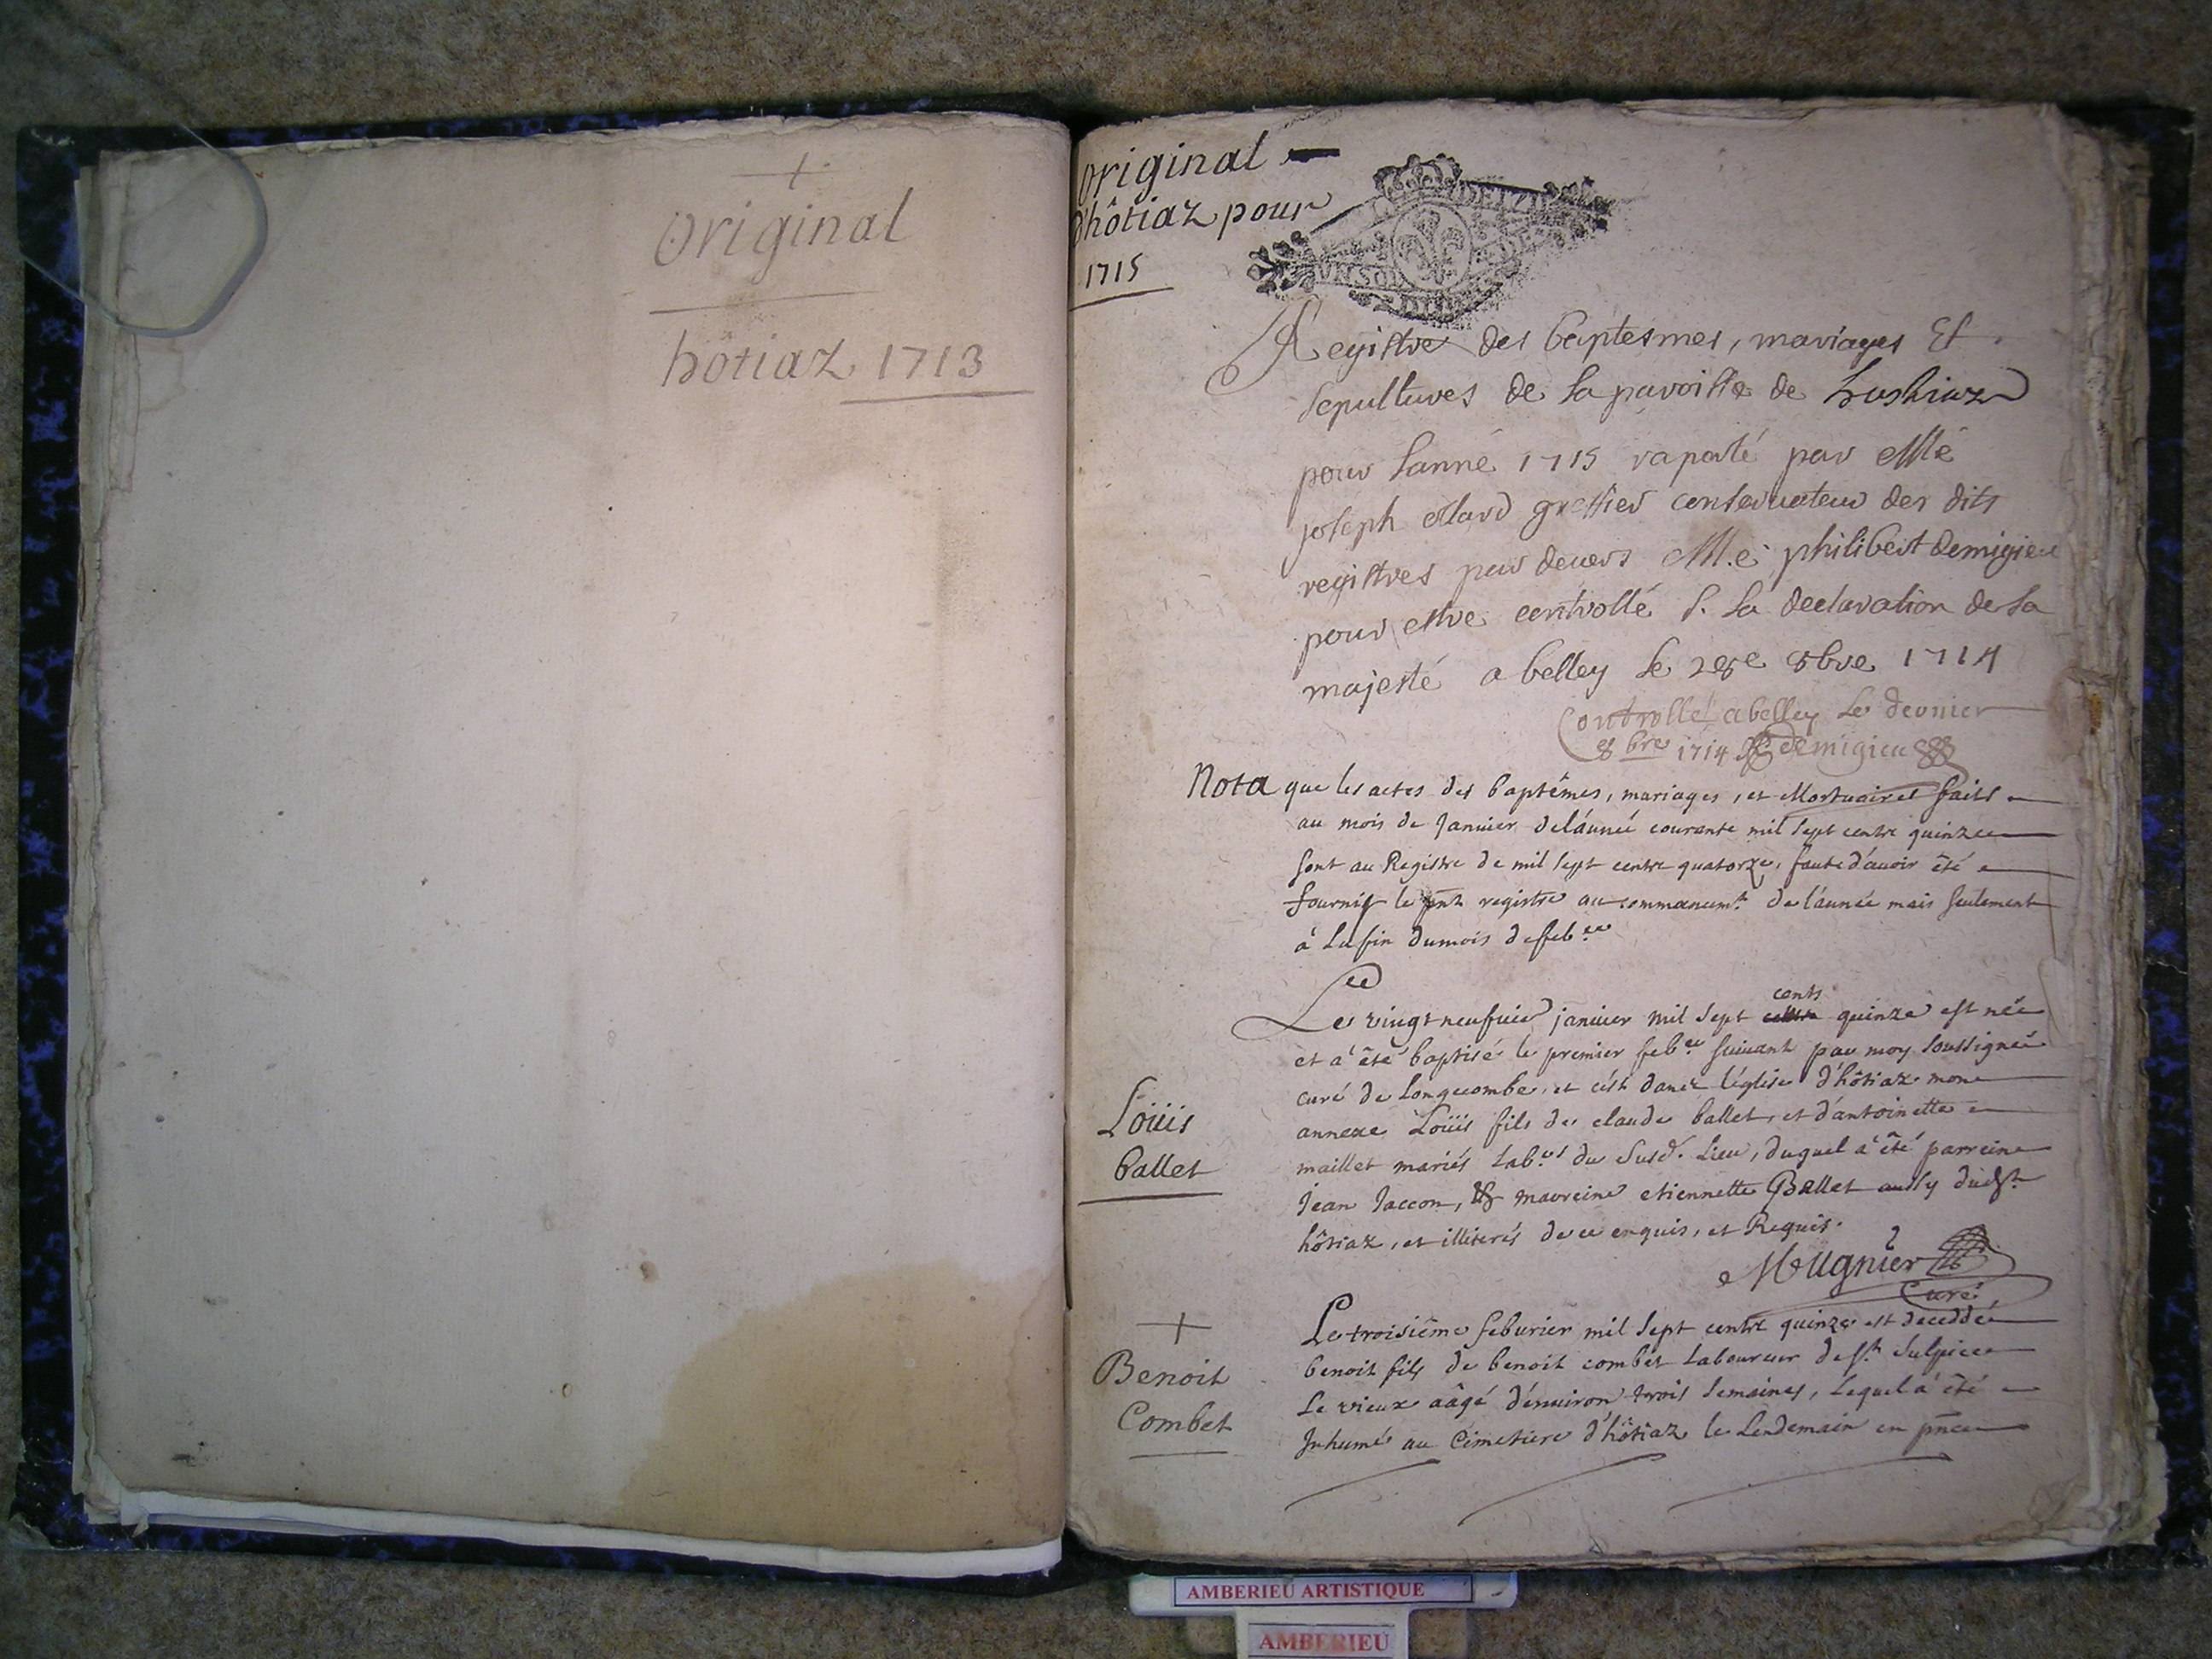 +
Original
hôtiaz 1713
Original
d'hôtiaz pour
1715
Registre des baptesmes, mariages Et
sepultures de la parroisse de
pour l'anné 1715 raporté par Me
joseph greffier conservateur des dits
registres par devers M.e philibert demigieu
pour estre controllé s. la declaration de sa
majesté a belley le 28e 8bre 1714
Controllé a belley le dernier
8bre 1714 demigieu
Nota que les actes des baptêmes, mariages, et Mortuaires faits
au mois de Janvier de l'année courante mil sept centz quinze
sont au Registre de mil sept centz quatorze, faute d'avoir êté
fournis le pnt registre au commancemt de l'année mais seulement
à la fin du mois de feb.er
Le vingt neufvie janvier mil sept cents quinze est née
et a êté baptisé le premier feb.er suivant par moy soussigné
curé de Longecombe, et c'est dans l'église d'hôtiaz mon
annexe Loüis fils de claude ballet, et d'antoinette
maillet mariés Lab.rs du susd. Lieu, duquel a êté parrein
Jean Jaccon, Et marreine etiennette Ballet aussy dudt
hôtiaz, et illiterés de ce enquis, et Requis.
Mugnier
Curé
Loüis
ballet
Le troisième feburier mil sept centz quinze est deceddé
benoit fils de benoit combet Laboureur de st. Sulpice
Le vieux aâgé d'environ trois semaines, Lequel a êté
Inhumé au Cimetiere d'hôtiaz le Lendemain en pnce
+
Benoit
Combet
AMBERIEU ARTISTIQUE
AMBERIEU